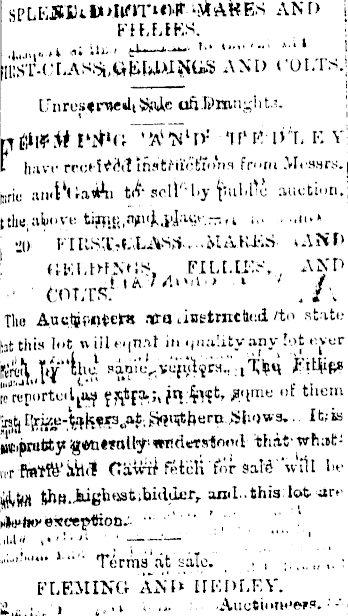 SPLENDID LOT OF MARES AND
FILLIES.
FIRST-CLASS GELDINGS AND COLTS.
Unreserved Sale of Draughts.
FLEMING AND HEDLEY
have received instructions from Messrs.
and Gawn to sell by public auction,
the above time and place
20 FIRST-CLASS MARES AND
GELDINGS, FILLIES, AND
COLTS.
The Auctioneers are instructed to state
that this lot will equal in quality any lot ever
offered by the same vendors. The Fillies
are reported as extra; in fact, some of them
first Prize-takers at Southern Shows. It is
pretty generally understood that what-
ever and Gawn fetch for sale will be
the highest bidder, and this lot are
no exception.
Terms at sale.
FLEMING AND HEDLEY,
Auctioneers.